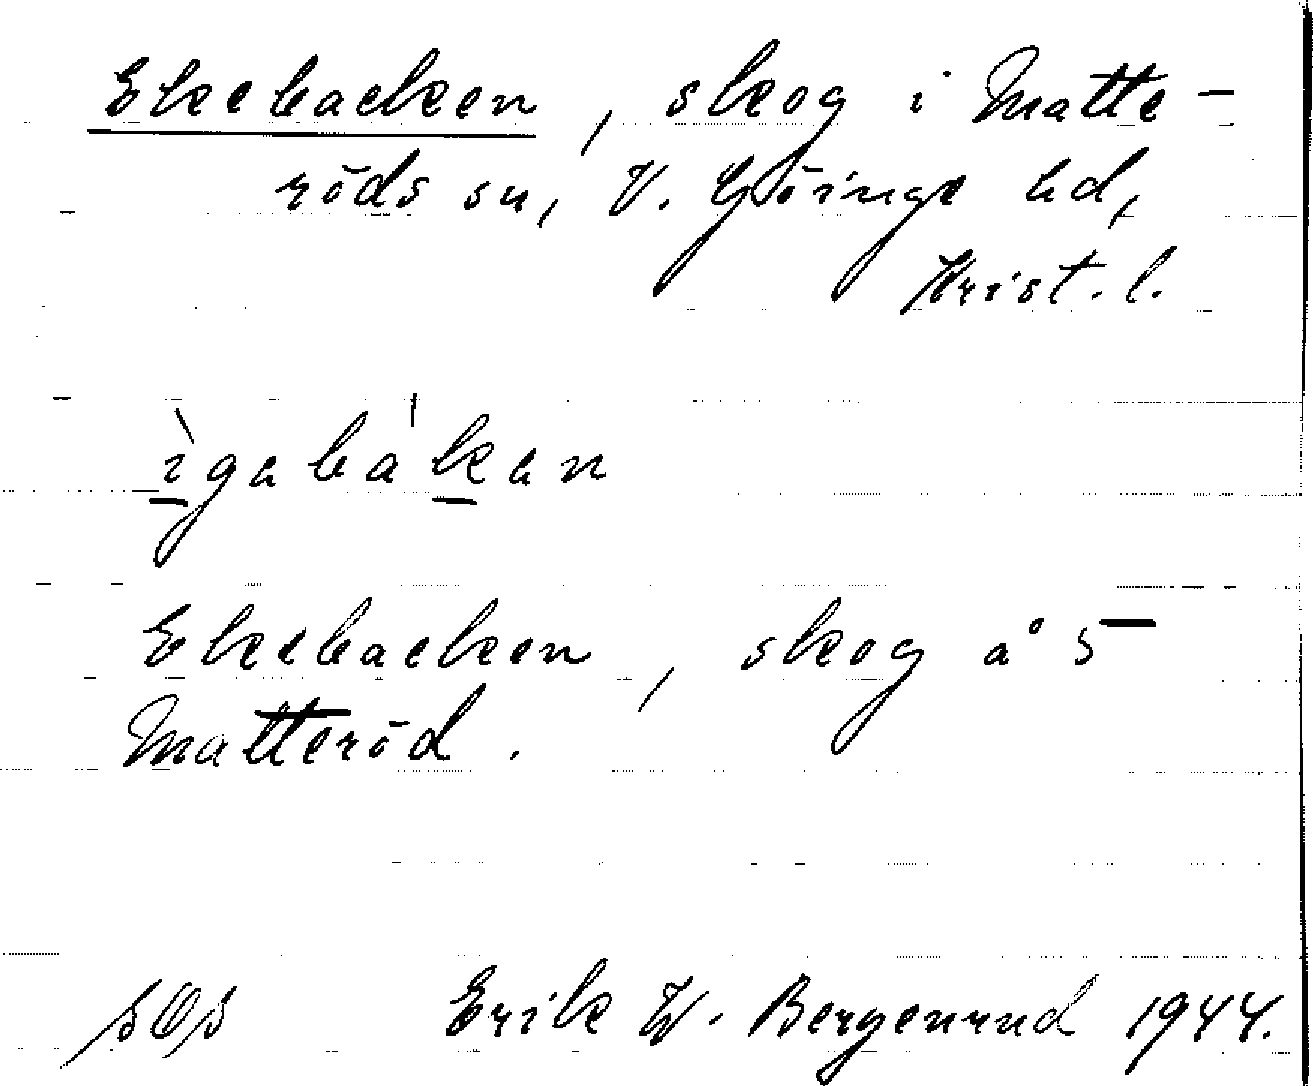 Ekebacken, skog i Matte-
röds sn, V. Göinge hd,
Krist. l.
ìgabàkan
Ekebacken, skog å 5
Matteröd.
Erik W. Bergenrud 1944.